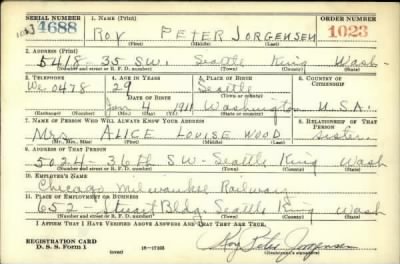 SERIAL NUMBER 1. NAME (Print) ORDER NUMBER
4688 ROY PETER JORGENSEN 1023
(First) (Middle) (Last)
2. ADDRESS (Print)
5418-35 SW. Seattle King Wash
(Number and street or R. F. D. number) (Town) (County) (State)
3. TELEPHONE 4. AGE IN YEARS 5. PLACE OF BIRTH 6. COUNTRY OF CITIZENSHIP
We 0478 29 Seattle
DATE OF BIRTH (Town or county)
Jan 4 1911 Washington U.S.A.
(Exchange) (Number) (Mo.) (Day) (Yr.) (State or country)
7. NAME OF PERSON WHO WILL ALWAYS KNOW YOUR ADDRESS 8. RELATIONSHIP OF THAT PERSON
Mrs ALICE LOUISE WOOD Sister
(Mr., Mrs., Miss) (First) (Middle) (Last)
9. ADDRESS OF THAT PERSON
5024-36th SW- Seattle King Wash
(Number and street or R. F. D. number) (Town) (County) (State)
10. EMPLOYER'S NAME
Chicago Milwaukee Railway
11. PLACE OF EMPLOYMENT OR BUSINESS
652- Stuart Bldg. Seattle King Wash
(Number and street or R. F. D. number) (Town) (County) (State)
I AFFIRM THAT I HAVE VERIFIED ABOVE ANSWERS AND THAT THEY ARE TRUE.
REGISTRATION CARD
D. S. S. Form 1 Roy Peter Jorgensen
(over) (Registrant's signature)